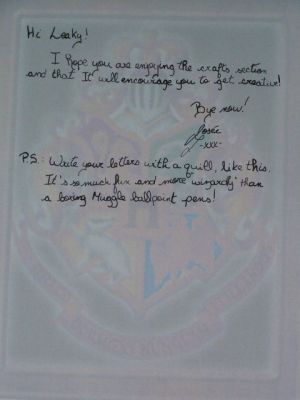 Hi Leaky!
I hope you are enjoying the crafts section
and that It will encourage you to get creative!
Bye now!
Josée
-xxx-
P.S.: Write your letters with a quill, like this.
It's so much fun and more "wizardly" than
a boring Muggle ballpoint pens!